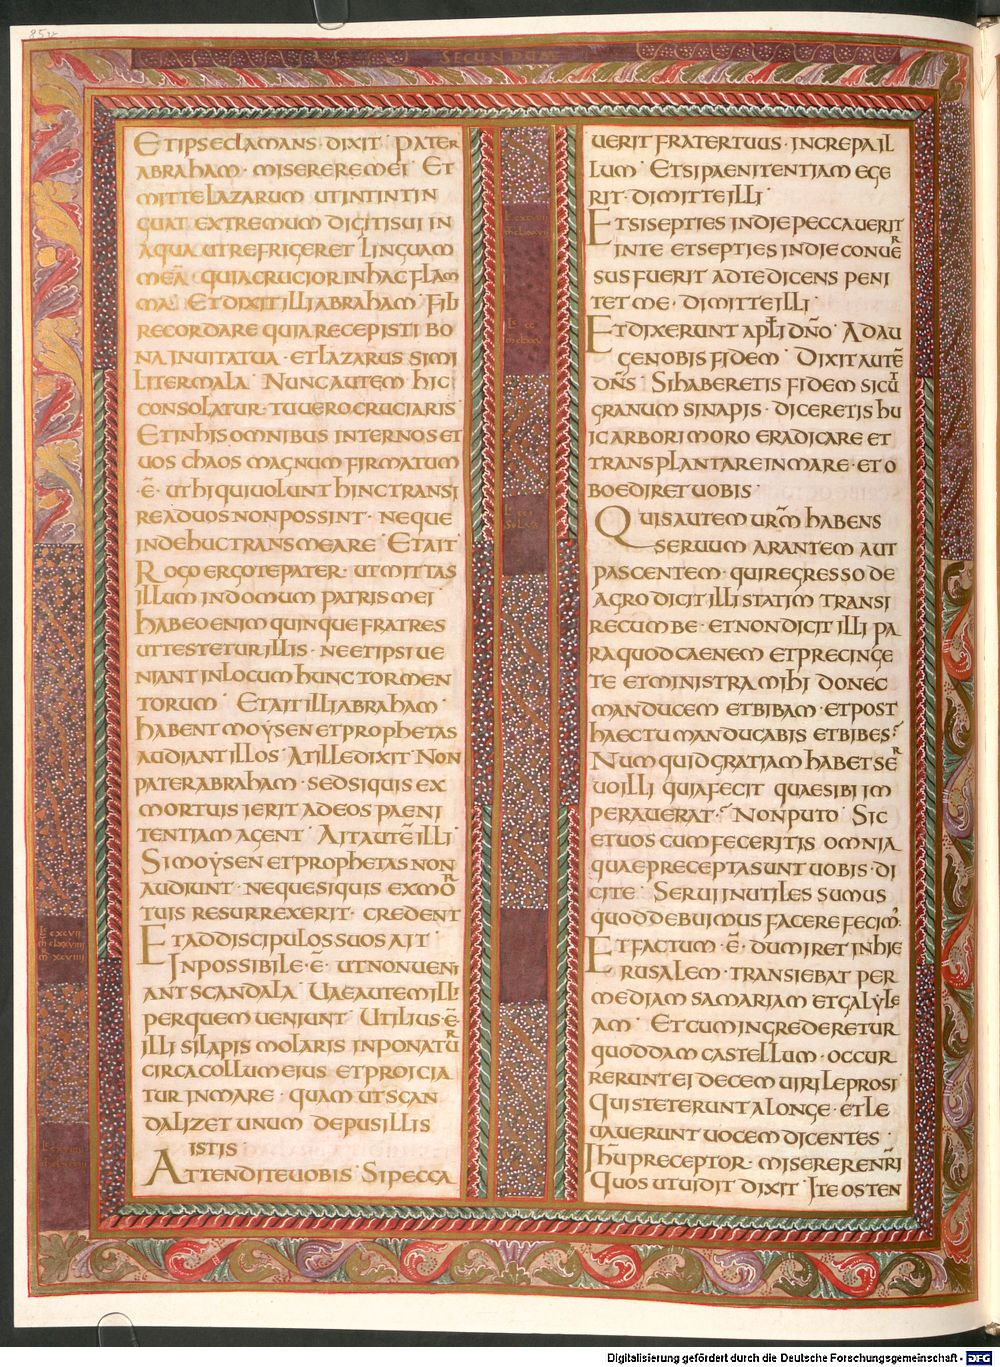 85v
SECU
Et ipse clamans dixit · Pater
abraham · miserere mei · Et
mitte lazarum ut intintin
guat extremum digiti sui in
aqua ut refrigeret linguam
meā · quia crucior in hac flam
ma · Et dixit illi abraham · Fili
recordare quia recepisti bo
na in uita tua · et lazarus simi
liter mala · Nunc autem hic
consolatur · tu uero cruciaris ·
Et in his omnibus inter nos et
uos chaos magnum firmatum
· ē · ut hi qui uolunt hinc transi
re ad uos non possint · neque
inde huc transmeare · Et ait ·
Rogo ergo te pater · ut mittas
illum in domum patris mei ·
habeo enim quinque fratres
ut testetur illis · ne et ipsi ue
niant in locum hunc tormen
torum · Et ait illi abraham ·
habent moẏsen et prophetas
audiant illos · At ille dixit · Non
pater abraham · sed si quis ex
mortuis ierit ad eos paeni
tentiam agent · Ait autē illi ·
Si moẏsen et prophetas non
audiunt · neque si quis ex mor
tuis resurrexerit · credent
Et ad discipulos suos ait ·
Inpossibile · ē · ut non ueni
ant scandala · Uae autem illi
per quem ueniunt · Utilius · ē ·
illi si lapis molaris inponatur
circa collum eius et proicia
tur in mare · quam ut scan
dalizet unum de pusillis
istis ·
Attendite uobis · Si pecca
uerit frater tuus · increpa il
lum · Et si paenitentiam ege
rit · dimitte illi ·
Et si septies in die peccauerit
in te et septies in die conuer
sus fuerit ad te dicens peni
tet me · dimitte illi ·
Et dixerunt apłi dn̄o · Adau
ge nobis fidem · Dixit autē
dn̄s · Si haberetis fidem sicut
granum sinapis · diceretis hu
ic arbori moro eradicare et
transplantare in mare · et o
boediret uobis ·
Quis autem ur̄m habens
seruum arantem aut
pascentem · qui regresso de
agro dicit illi statim transi
recumbe · et non dicit illi pa
ra quod caenem et precinge
te et ministra mihi donec
manducem et bibam · et post
haec tu manducabis et bibes ·
Numquid gratiam habet ser
uo illi quia fecit quae sibi im
perauerat · Non puto · Sic
et uos cum feceritis omnia
quae precepta sunt uobis · di
cite · Serui inutiles sumus
quod debuimus facere fecim'
Et factum · ē · dum iret in hie
rusalem · transiebat per
mediam samariam et galẏle
am · Et cum ingrederetur
quoddam castellum · occur
rerunt ei decem uiri leprosi
qui steterunt a longe · et le
uauerunt uocem dicentes ·
Ih̄u preceptor · miserere nr̄i
quos ut uidit dixit · Ite osten
Digitalisierung gefördert durch die Deutsche Forschungsgemeinschaft - DFG